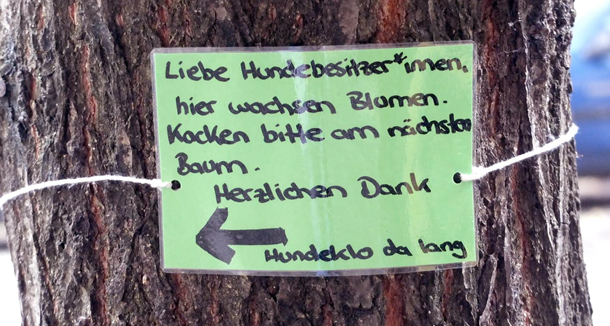 Liebe Hundebesitzer*innen,
hier wachsen Blumen.
Kacken bitte am nächsten
Baum.
Herzlichen Dank
Hundeklo da lang